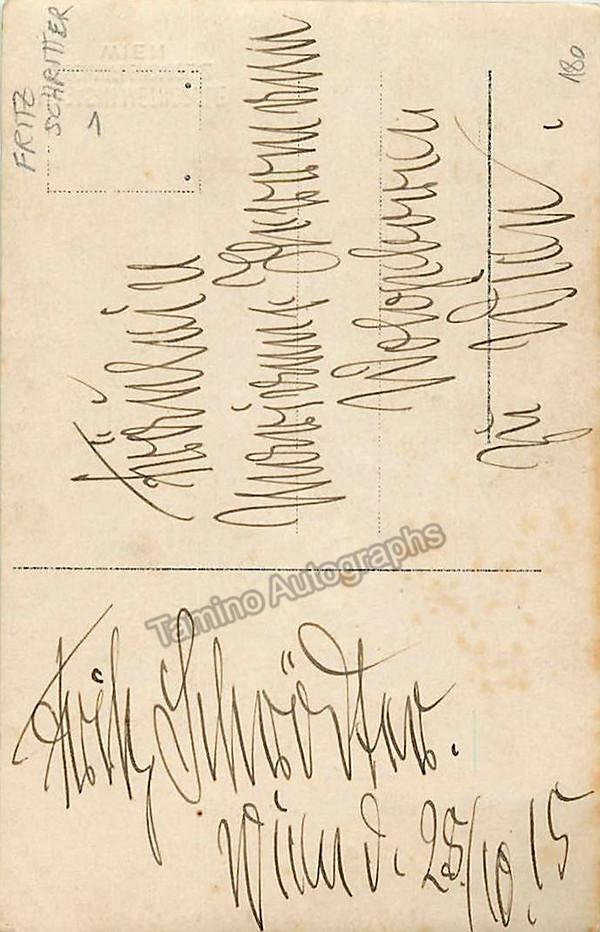 FRITZ
SCHRITTER
180
WIEN
Fräulein
Marianne
Wien.
Tamino Autographs
Fritz Schrödter.
Wien d. 28/10.15